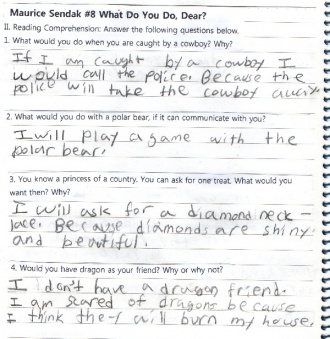 Maurice Sendak #8 What Do You Do, Dear?
II. Reading Comprehension: Answer the following questions below.
1. What would you do when you are caught by a cowboy? Why?
If I am caught by a cowboy I
would call the police. Because the
police will take the cowboy
2. What would you do with a polar bear, if it can communicate with you?
I will play a game with the
polar bear.
3. You know a princess of a country. You can ask for one treat. What would you
want then? Why?
I will ask for a diamond neck -
lace. Because diamonds are shiny
and beautiful.
4. Would you have dragon as your friend? Why or why not?
I don't have a dragon friend.
I am scared of dragons because
I think they will burn my house.